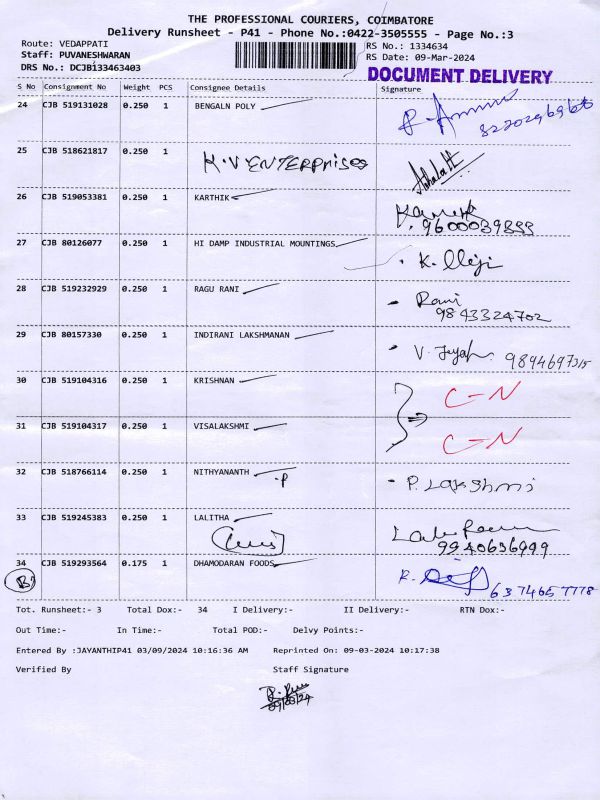 THE PROFESSIONAL COURIERS, COIMBATORE
Delivery Runsheet - P41 - Phone No.:0422-3505555 - Page No.:3
Route: VEDAPPATI
RS No.: 1334634
Staff: PUVANESHWARAN
RS Date: 09-Mar-2024
DRS No.: DCJB133463403
DOCUMENT DELIVERY
S No Consignment No Weight PCS Consignee Details Signature
24 CJB 519131028 0.250 1 BENGALN POLY
25 CJB 518621817 0.250 1 K.V ENTERPRISES
26 CJB 519053381 0.250 1 KARTHIK
27 CJB 80126077 0.250 1 HI DAMP INDUSTRIAL MOUNTINGS K.
28 CJB 519232929 0.250 1 RAGU RANI Rani
9843324702
29 CJB 80157330 0.250 1 INDIRANI LAKSHMANAN V. 9894697315
30 CJB 519104316 0.250 1 KRISHNAN C-N
31 CJB 519104317 0.250 1 VISALAKSHMI C-N
32 CJB 518766114 0.250 1 NITHYANANTH .P P. Lakshmi
33 CJB 519245383 0.250 1 LALITHA
34 CJB 519293564 0.175 1 DHAMODARAN FOODS R.
6374657778
Tot. Runsheet:- 3 Total Dox:- 34 I Delivery:- II Delivery:- RTN Dox:-
Out Time:- In Time:- Total POD:- Delvy Points:-
Entered By :JAYANTHIP41 03/09/2024 10:16:36 AM Reprinted On: 09-03-2024 10:17:38
Verified By Staff Signature